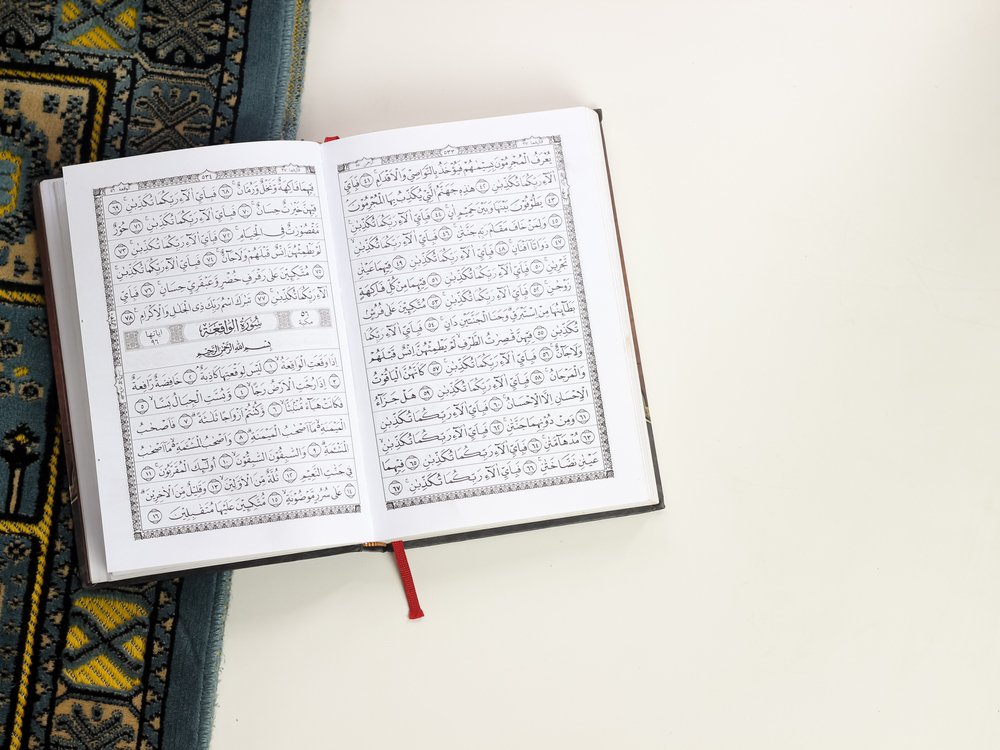 ٥٣٣
يُعْرَفُ الْمُجْرِمُونَ بِسِيمَٰهُمْ فَيُؤْخَذُ بِالنَّوَٰصِي وَالْأَقْدَامِ ٤١ فَبِأَيِّ
ءَالَآءِ رَبِّكُمَا تُكَذِّبَانِ ٤٢ هَٰذِهِۦ جَهَنَّمُ الَّتِي يُكَذِّبُ بِهَا الْمُجْرِمُونَ
٤٣ يَطُوفُونَ بَيْنَهَا وَبَيْنَ حَمِيمٍ ءَانٍ ٤٤ فَبِأَيِّ ءَالَآءِ رَبِّكُمَا تُكَذِّبَانِ
٤٥ وَلِمَنْ خَافَ مَقَامَ رَبِّهِۦ جَنَّتَانِ ٤٦ فَبِأَيِّ ءَالَآءِ رَبِّكُمَا تُكَذِّبَانِ
٤٧ ذَوَاتَآ أَفْنَانٍ ٤٨ فَبِأَيِّ ءَالَآءِ رَبِّكُمَا تُكَذِّبَانِ ٤٩ فِيهِمَا عَيْنَانِ
تَجْرِيَانِ ٥٠ فَبِأَيِّ ءَالَآءِ رَبِّكُمَا تُكَذِّبَانِ ٥١ فِيهِمَا مِن كُلِّ فَٰكِهَةٍ
زَوْجَانِ ٥٢ فَبِأَيِّ ءَالَآءِ رَبِّكُمَا تُكَذِّبَانِ ٥٣ مُتَّكِـِٔينَ عَلَىٰ فُرُشٍ
بَطَآئِنُهَا مِنْ إِسْتَبْرَقٍ وَجَنَى الْجَنَّتَيْنِ دَانٍ ٥٤ فَبِأَيِّ ءَالَآءِ رَبِّكُمَا
تُكَذِّبَانِ ٥٥ فِيهِنَّ قَٰصِرَٰتُ الطَّرْفِ لَمْ يَطْمِثْهُنَّ إِنسٌ قَبْلَهُمْ
وَلَا جَآنٌّ ٥٦ فَبِأَيِّ ءَالَآءِ رَبِّكُمَا تُكَذِّبَانِ ٥٧ كَأَنَّهُنَّ الْيَاقُوتُ
وَالْمَرْجَانُ ٥٨ فَبِأَيِّ ءَالَآءِ رَبِّكُمَا تُكَذِّبَانِ ٥٩ هَلْ جَزَآءُ
الْإِحْسَٰنِ إِلَّا الْإِحْسَٰنُ ٦٠ فَبِأَيِّ ءَالَآءِ رَبِّكُمَا تُكَذِّبَانِ
٦١ وَمِن دُونِهِمَا جَنَّتَانِ ٦٢ فَبِأَيِّ ءَالَآءِ رَبِّكُمَا تُكَذِّبَانِ
٦٣ مُدْهَآمَّتَانِ ٦٤ فَبِأَيِّ ءَالَآءِ رَبِّكُمَا تُكَذِّبَانِ ٦٥ فِيهِمَا
عَيْنَانِ نَضَّاخَتَانِ ٦٦ فَبِأَيِّ ءَالَآءِ رَبِّكُمَا تُكَذِّبَانِ ٦٧
فِيهِمَا فَٰكِهَةٌ وَنَخْلٌ وَرُمَّانٌ ٦٨ فَبِأَيِّ ءَالَآءِ رَبِّكُمَا تُكَذِّبَانِ ٦٩
فِيهِنَّ خَيْرَٰتٌ حِسَانٌ ٧٠ فَبِأَيِّ ءَالَآءِ رَبِّكُمَا تُكَذِّبَانِ ٧١ حُورٌ
مَّقْصُورَٰتٌ فِي الْخِيَامِ ٧٢ فَبِأَيِّ ءَالَآءِ رَبِّكُمَا تُكَذِّبَانِ ٧٣
لَمْ يَطْمِثْهُنَّ إِنسٌ قَبْلَهُمْ وَلَا جَآنٌّ ٧٤ فَبِأَيِّ ءَالَآءِ رَبِّكُمَا تُكَذِّبَانِ
٧٥ مُتَّكِـِٔينَ عَلَىٰ رَفْرَفٍ خُضْرٍ وَعَبْقَرِيٍّ حِسَانٍ ٧٦ فَبِأَيِّ
ءَالَآءِ رَبِّكُمَا تُكَذِّبَانِ ٧٧ تَبَٰرَكَ اسْمُ رَبِّكَ ذِي الْجَلَٰلِ وَالْإِكْرَامِ ٧٨
٥٦ مكية سُورَةُ الْوَاقِعَةِ اياتها ٩٦
بِسْمِ اللَّهِ الرَّحْمَٰنِ الرَّحِيمِ
إِذَا وَقَعَتِ الْوَاقِعَةُ ١ لَيْسَ لِوَقْعَتِهَا كَاذِبَةٌ ٢ خَافِضَةٌ رَّافِعَةٌ
٣ إِذَا رُجَّتِ الْأَرْضُ رَجًّا ٤ وَبُسَّتِ الْجِبَالُ بَسًّا ٥
فَكَانَتْ هَبَآءً مُّنۢبَثًّا ٦ وَكُنتُمْ أَزْوَٰجًا ثَلَٰثَةً ٧ فَأَصْحَٰبُ
الْمَيْمَنَةِ مَآ أَصْحَٰبُ الْمَيْمَنَةِ ٨ وَأَصْحَٰبُ الْمَشْـَٔمَةِ مَآ أَصْحَٰبُ
الْمَشْـَٔمَةِ ٩ وَالسَّٰبِقُونَ السَّٰبِقُونَ ١٠ أُو۟لَٰٓئِكَ الْمُقَرَّبُونَ ١١
فِي جَنَّٰتِ النَّعِيمِ ١٢ ثُلَّةٌ مِّنَ الْأَوَّلِينَ ١٣ وَقَلِيلٌ مِّنَ الْـَٔاخِرِينَ
١٤ عَلَىٰ سُرُرٍ مَّوْضُونَةٍ ١٥ مُّتَّكِـِٔينَ عَلَيْهَا مُتَقَٰبِلِينَ ١٦